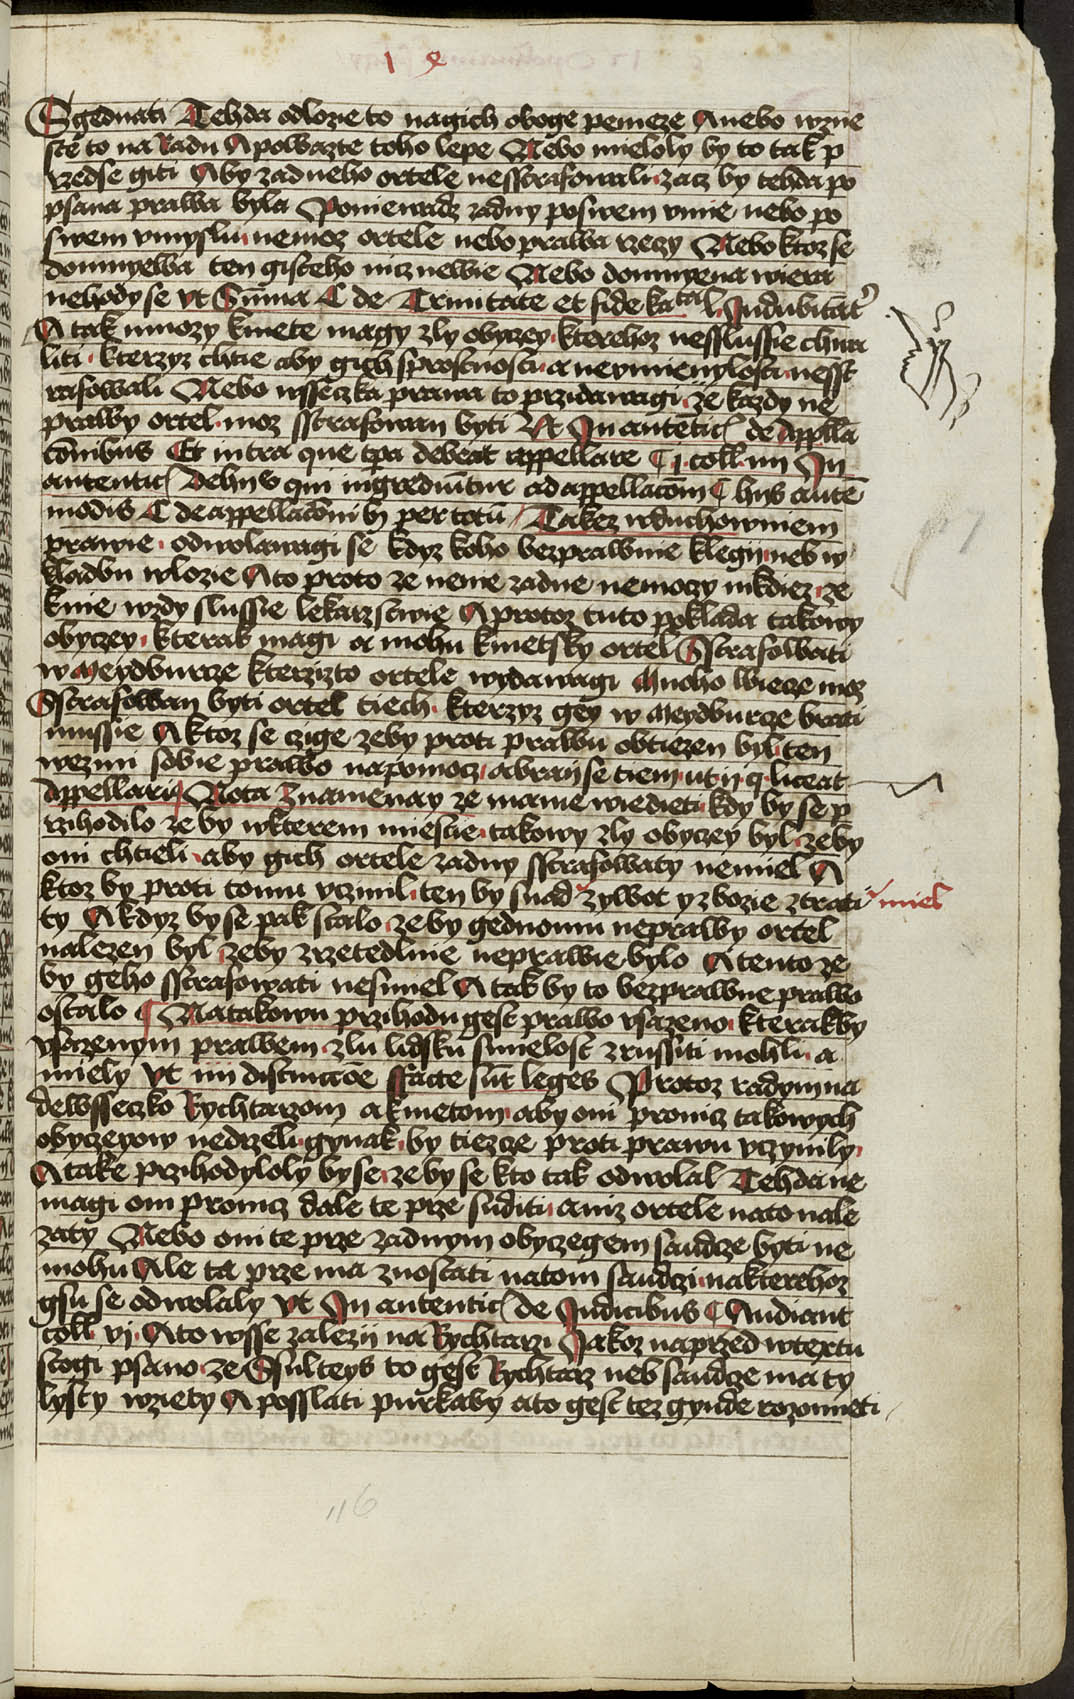 Sgednati Tehda odlozie to nagich oboge penieze Anebo wznes
ste to na Radu A powazte toho lepe Nebo mieloly by to tak p
rzedse giti Aby zadneho ortele nesstrafowali zacz by tehda po
psana prawa byla Poniewadz zadny poswem vmie nebo po
swem vmyslu nemoz ortele nebo prawa rzeczy Nebo ktoz se
domnyewa ten gisteho nicz newie Nebo domnyena wiera
nehodyse vt Suma C de Trinitate et fide katal l. Indubitat
A tak mnozy kmete magy zly obyczey kterehoz nesslussie chwa
liti kterzyz chtie aby gich sprostnosti a neumienylosti nesst
rafowali Nebo wsseczka prawa to przidawagi ze kazdy ne
prawy ortel moz sstrafowan byti Vt In autetic de Appella
conibus Et intra que tpa debeat appellare C j coll iiij In
autentic Dehijs qui ingrediutur ad appellacom C hijs aute
modis C de appellaconibus per totu Takez wduchowniem
prawie odwolawagi se kdyz koho bezprawnie klegij neb w
kladbu wlozie A to proto ze nenie zadne nemoczy nikdiez ze
knie wzdy slussie lekarzstwie A protoz tuto poklada takowy
obyczey kterak magi a mohu kmetsky ortel Sstrafowati
w Meydburcze kterzizto ortele wydawagi Mnoho wiecze moz
Sstrafowan byti ortel tiech kterzyz gey w Meydburcze brati
mussie A ktoz se czige zeby proti prawu obtiezen byl ten
wezmi sobie prawo napomocz abran se tiem ut ij q liceat
Appellari Nota Znamenay ze mame wiedieti kdy by se p
rzihodilo ze by wkterem miestie takowy zly obyczey byl zeby
oni chtieli aby gich ortele zadny sstrafowaty nemiel A
ktoz by proti tomu vczinil ten by snad zywot y zbozie ztrati miel
ty A kdyz by se pak stalo ze by gednomu neprawy ortel
nalezen byl zeby zrzetedlnie neprawie bylo A tento ze
by geho sstrafowati nesmiel A tak by to bezprawne prawo
ostalo Natakowu przihodu gest prawo vsazeno kterakby
vsazenym prawem zlu lidsku smielost zrussiti mohlu a
miely Vt iiij distinccoe Facte sut leges Protoz radym na
dewsseczko Rychtarzom a kmetom aby oni proniz takowych
obyczeyow nedrzeli gynak by tiezcze proti prawu vczynily
A take przihodyloly by se ze by se kto tak odwolal Tehda ne
magi oni proniz dale te prze suditi aniz ortele nato nale
zaty Nebo oni te prze zadnym obyczegem saudcze byti ne
mohu Ale ta prze ma znostati natom saudczi nakterehoz
gsu se odwolaly Vt In autentic de Iudicibus C Audiant
coll vj A to wsse zalezij na Rychtarzi Jakoz naprzed wtextu
stogi psano ze Ssulteys to gest Rychtarz neb saudcze ma ty
lysty wziety A posslati purkaby ato gest tez gynde rozomieti
116